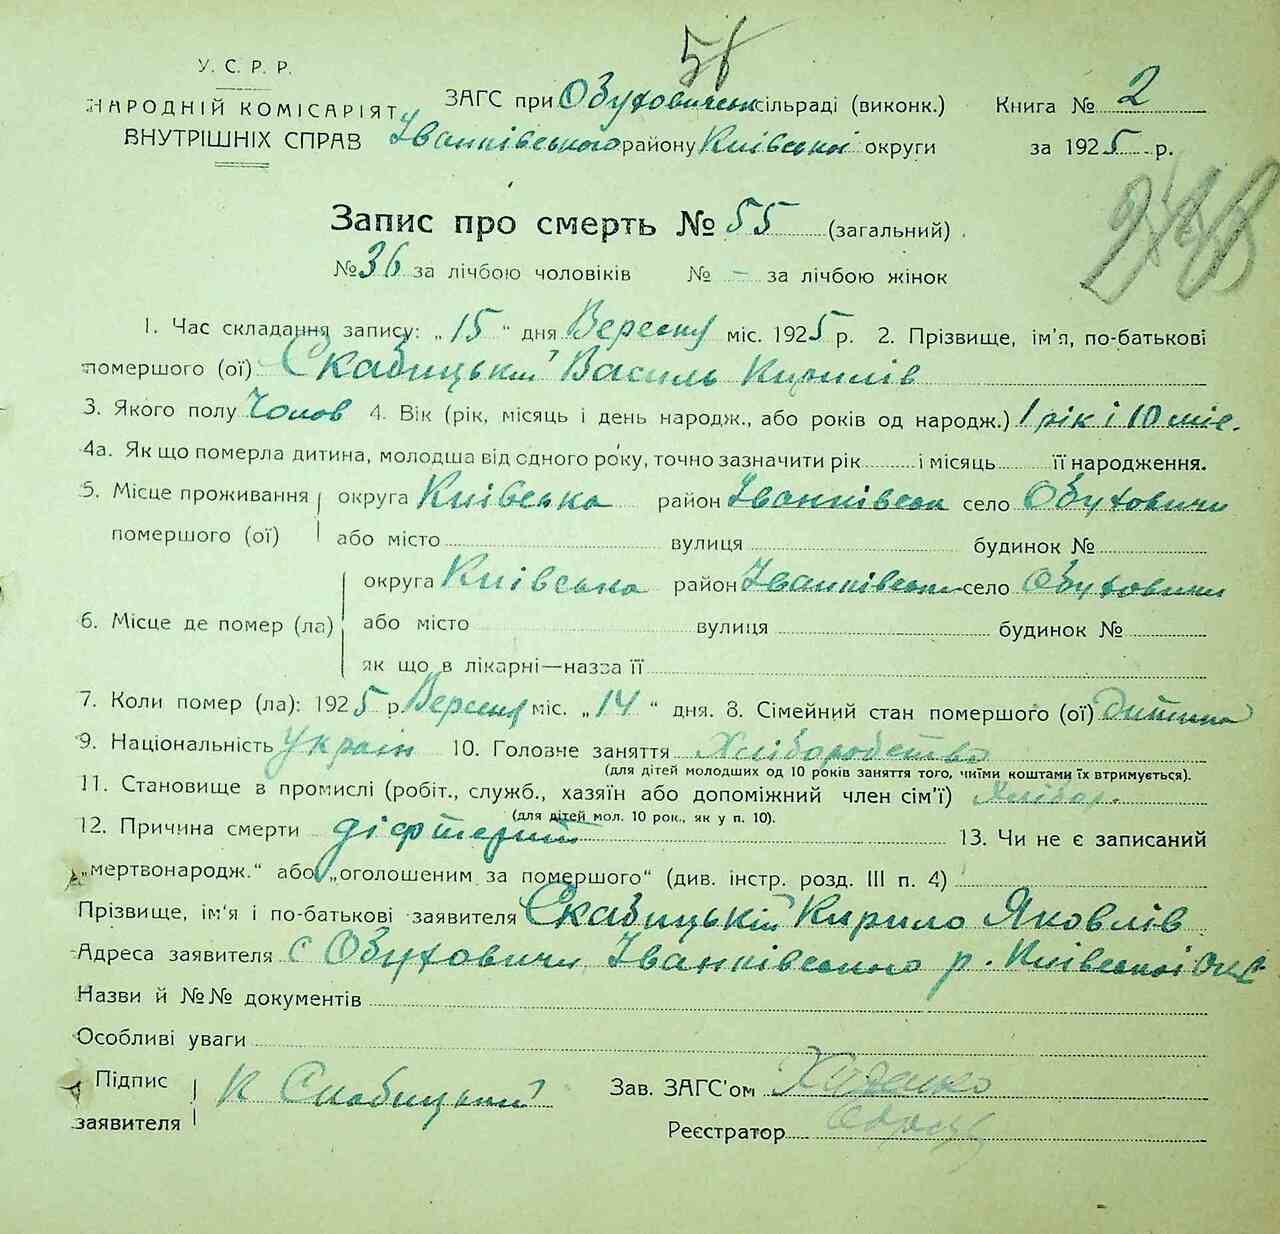 У. С. Р. Р.
НАРОДНІЙ КОМІСАРІЯТ
ВНУТРІШНІХ СПРАВ
ЗАГС при Обуховицькій сільраді (виконк.)
Іванківського району Київської округи
Книга № 2
за 1925 р.
Запис про смерть № 55 (загальний)
№ 36 за лічбою чоловіків № – за лічбою жінок
1. Час складання запису: „15“ дня Вересня міс. 1925 р. 2. Прізвище, ім'я, по-батькові
помершого (ої) Скабицький Василь Кирилів
3. Якого полу Чолов 4. Вік (рік, місяць і день народж., або років од народж.) 1 рік і 10 міс.
4а. Як що померла дитина, молодша від одного року, точно зазначити рік і місяць її народження.
5. Місце проживання помершого (ої)
округа Київська район Іванківськ село Обуховичи
або місто вулиця будинок №
6. Місце де помер (ла)
округа Київська район Іванківськ село Обуховичи
або місто вулиця будинок №
як що в лікарні—назва її
7. Коли помер (ла): 1925 р. Вересня міс. „14“ дня. 8. Сімейний стан помершого (ої) Дитина
9. Національність Україн 10. Головне заняття Хліборобство
(для дітей молодших од 10 років заняття того, чиїми коштами їх втримується).
11. Становище в промислі (робіт., служб., хазяїн або допоміжний член сім'ї) Хлібор.
(для дітей мол. 10 рок., як у п. 10).
12. Причина смерти діфтерит 13. Чи не є записаний
„мертвонародж.“ або „оголошеним за помершого“ (див. інстр. розд. III п. 4)
Прізвище, ім'я і по-батькові заявителя Скабицькій Кирило Яковлів
Адреса заявителя с Обуховичи Іванківського р. Київської окр
Назви й №№ документів
Особливі уваги
Підпис заявителя К Скабицкий
Зав. ЗАГС'ом
Реєстратор